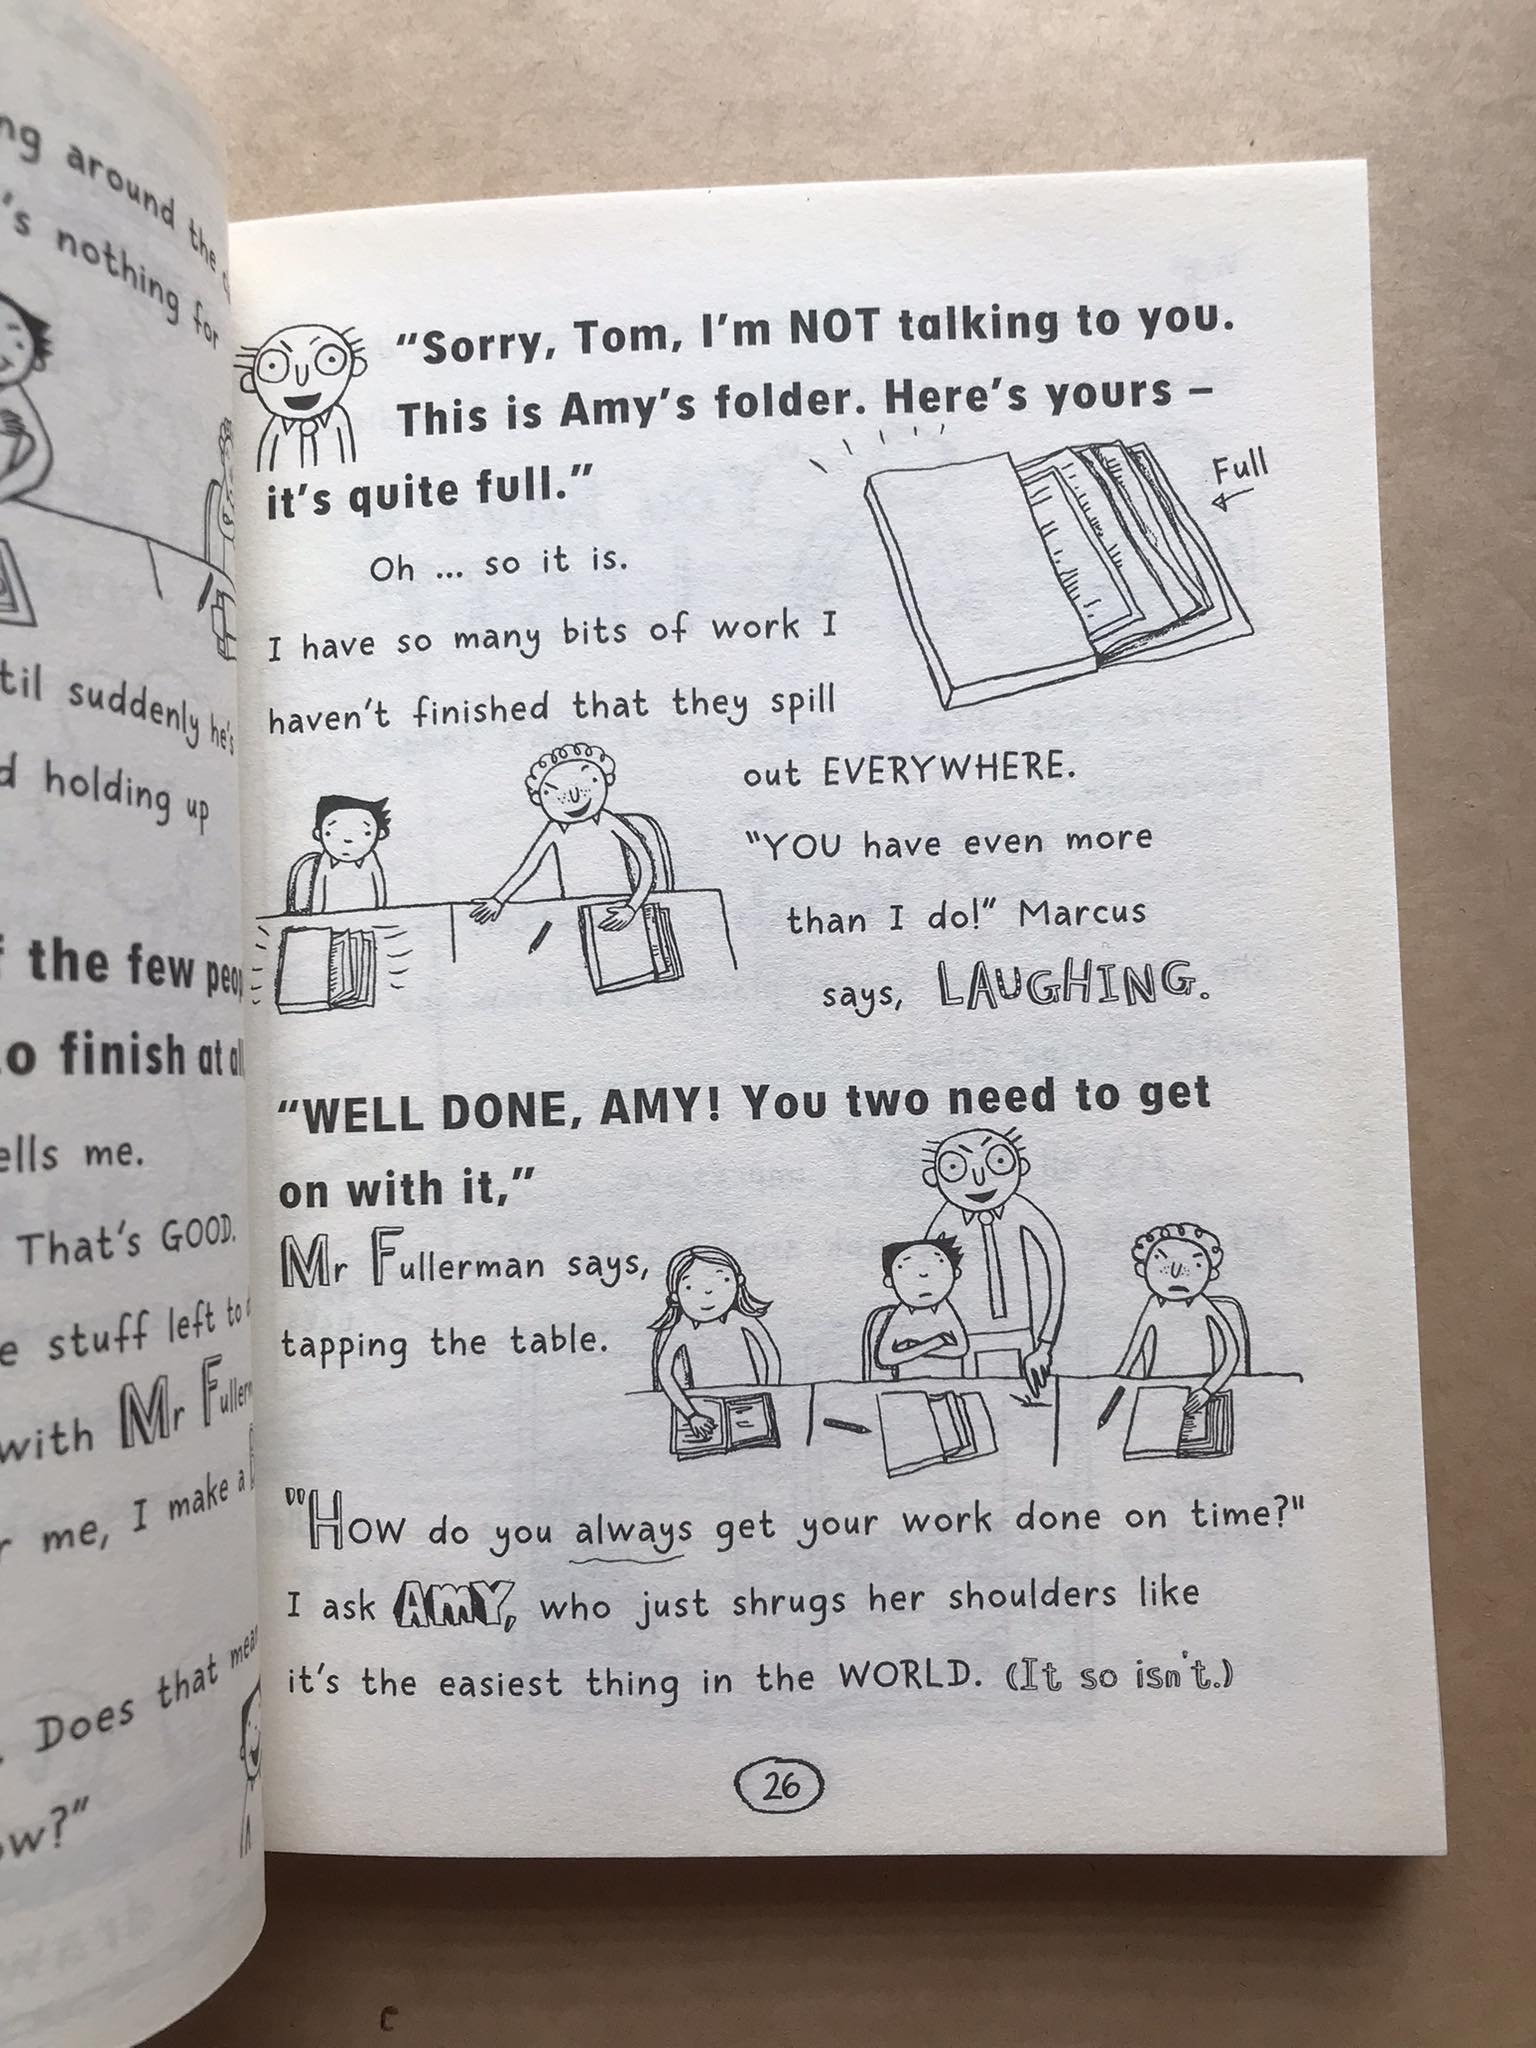 ng around the
's nothing for
til suddenly he's
d holding up
f the few
to finish at
ells me.
That's GOOD.
e stuff left to
with Mr
r me, I make a
. Does that
ow?"
"Sorry, Tom, I'm NOT talking to you.
This is Amy's folder. Here's yours –
it's quite full."
Full
Oh ... so it is.
I have so many bits of work I
haven't finished that they spill
out EVERYWHERE.
"YOU have even more
than I do!" Marcus
says, LAUGHING.
"WELL DONE, AMY! You two need to get
on with it,"
Mr Fullerman says,
tapping the table.
"How do you always get your work done on time?"
I ask AMY, who just shrugs her shoulders like
it's the easiest thing in the WORLD. (It so isn't.)
26